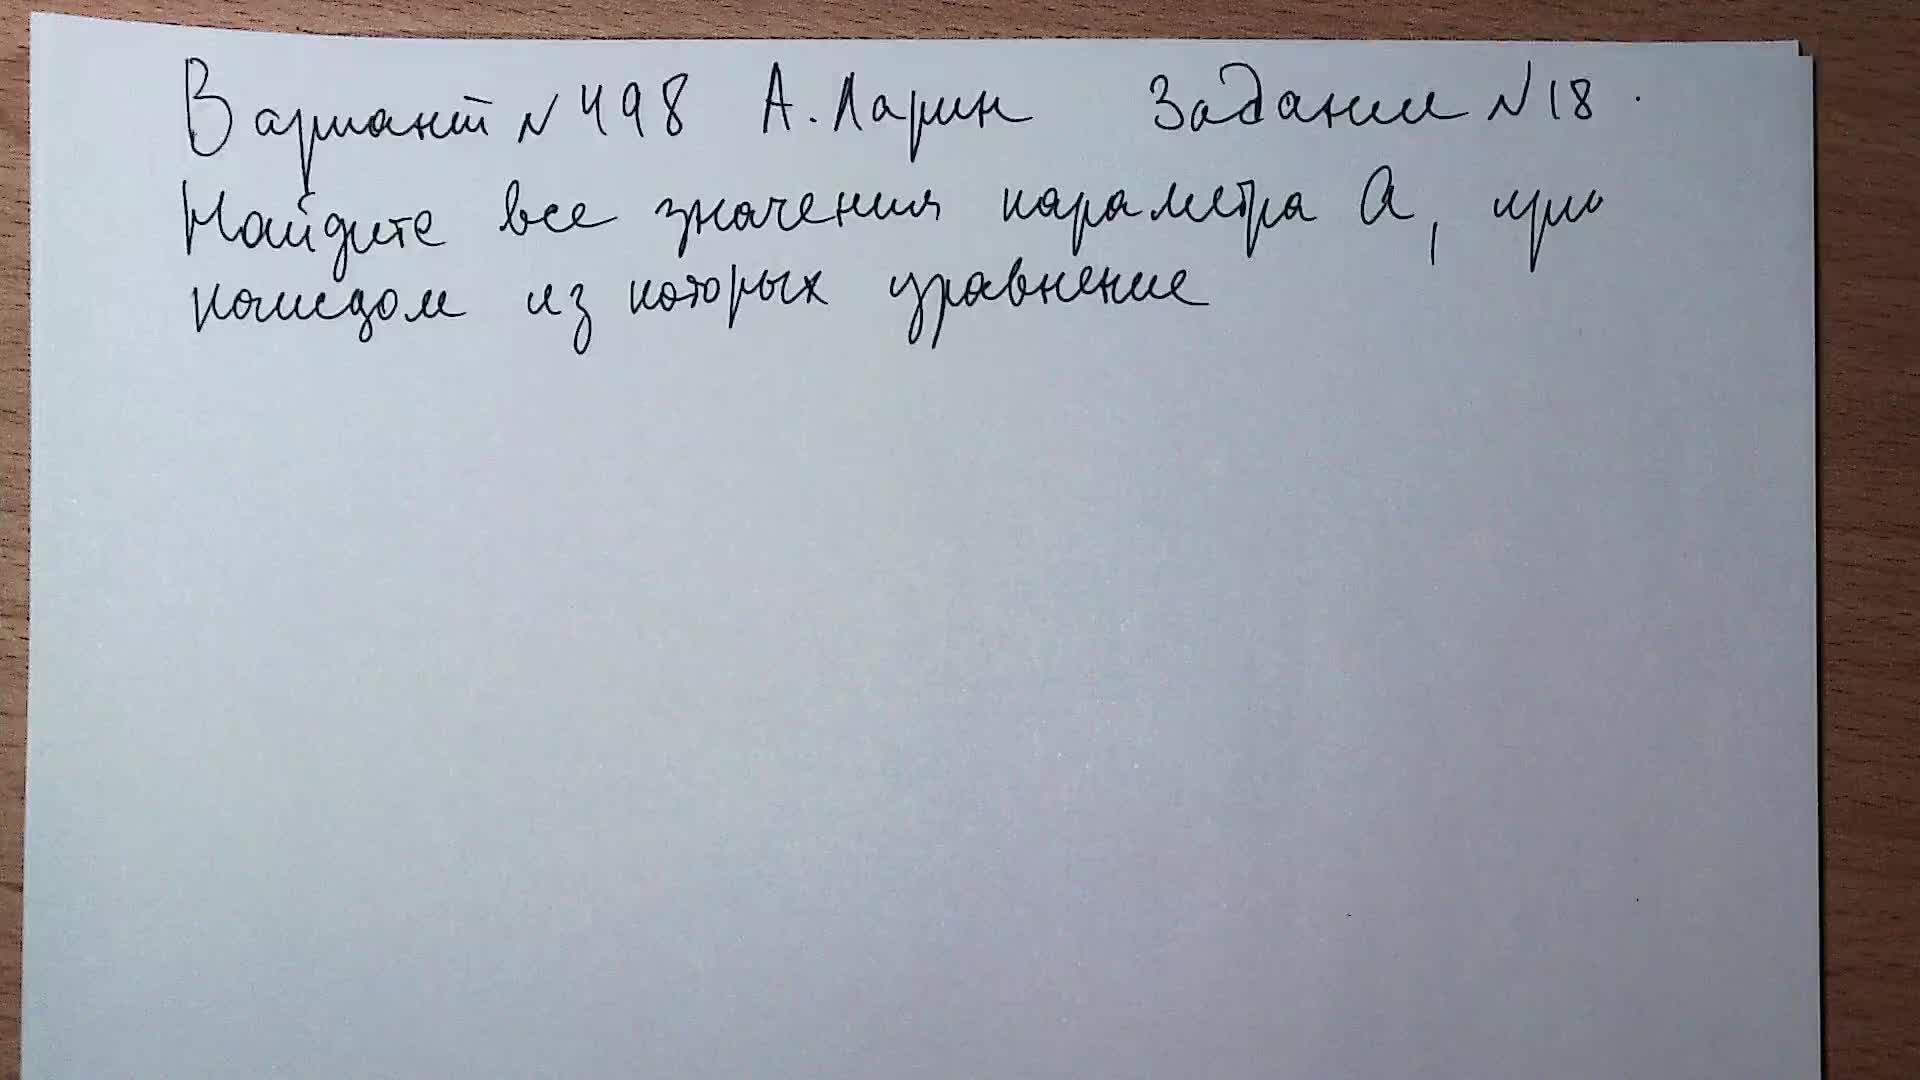 Вариант №498 А. Ларин Задание №18.
Найдите все значения параметра а, при
каждом из которых уравнение